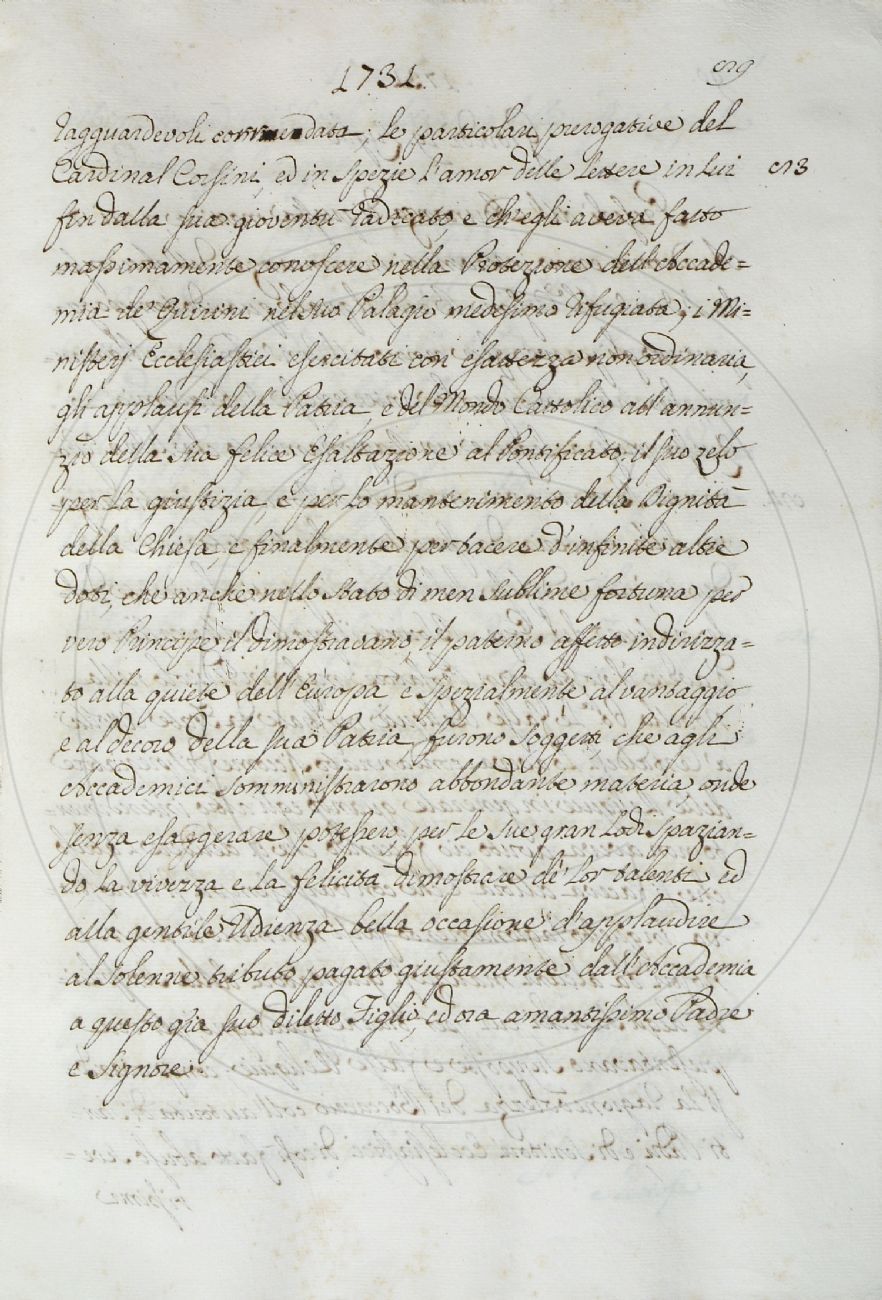 1731.
ragguardevoli commendata; le particolari prerogative del
Cardinal Corsini, ed in spezie l'amor delle Lettere in Lui
fin dalla sua gioventù radicato, e ch'egli aveva fatto
massimamente conoscere nella Protezione dell'Accade=
mia de' Quirini nel suo Palagio medesimo rifugiata; i Mi=
nisterj Ecclesiastici esercitati con esattezza non ordinaria,
gli applausi della Patria, e del Mondo Cattolico all'annun=
zio della sua felice Esaltazione al Pontificato; il suo zelo
per la giustizia, e per lo mantenimento della Dignità
della Chiesa, e finalmente per tacere d'infinite altre
doti, che anche nello stato di men sublime fortuna per
vero Principe il dimostravano, il paterno affetto indirizza=
to alla quiete dell'Europa e spezialmente al vantaggio,
e al decoro della sua Patria, furono soggetti, che agli
Accademici somministrarono abbondante materia, onde
senza esaggerare potessero, per le sue gran Lodi spazian=
do, la vivezza e la felicità dimostrare de' lor talenti ed
alla gentile Udienza bella occasione d'applaudire
al solenne tributo pagato giustamente dall'Accademia
a questo già suo diletto Figlio, ed ora amantissimo Padre
e Signore.